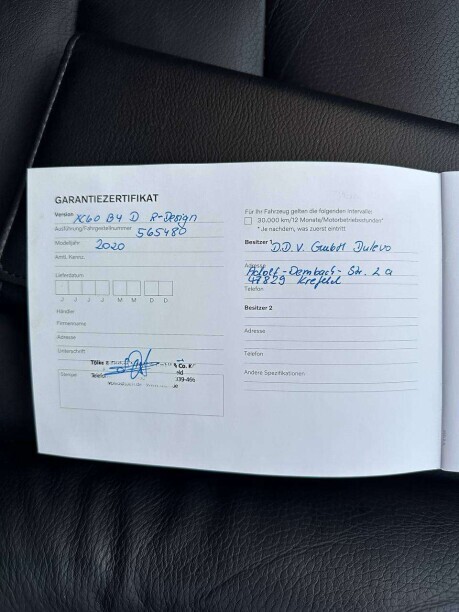 GARANTIEZERTIFIKAT
Version XC60 B4 D R-Design
Ausführung/Fahrgestellnummer 565480
Modelljahr 2020
Amtl. Kennz.
Lieferdatum
J J J J M M D D
Händler
Firmenname
Adresse
Unterschrift
Tölke & Co. K
Stempel Telefo 39-46
Für Ihr Fahrzeug gelten die folgenden Intervalle:
30.000 km/12 Monate/Motorbetriebsstunden*
* Je nachdem, was zuerst eintritt
Besitzer 1 D.D.V. GmbH Dulevo
Adresse Adolf-Dembach-Str. 2a
47829 Krefeld
Telefon
Besitzer 2
Adresse
Telefon
Andere Spezifikationen